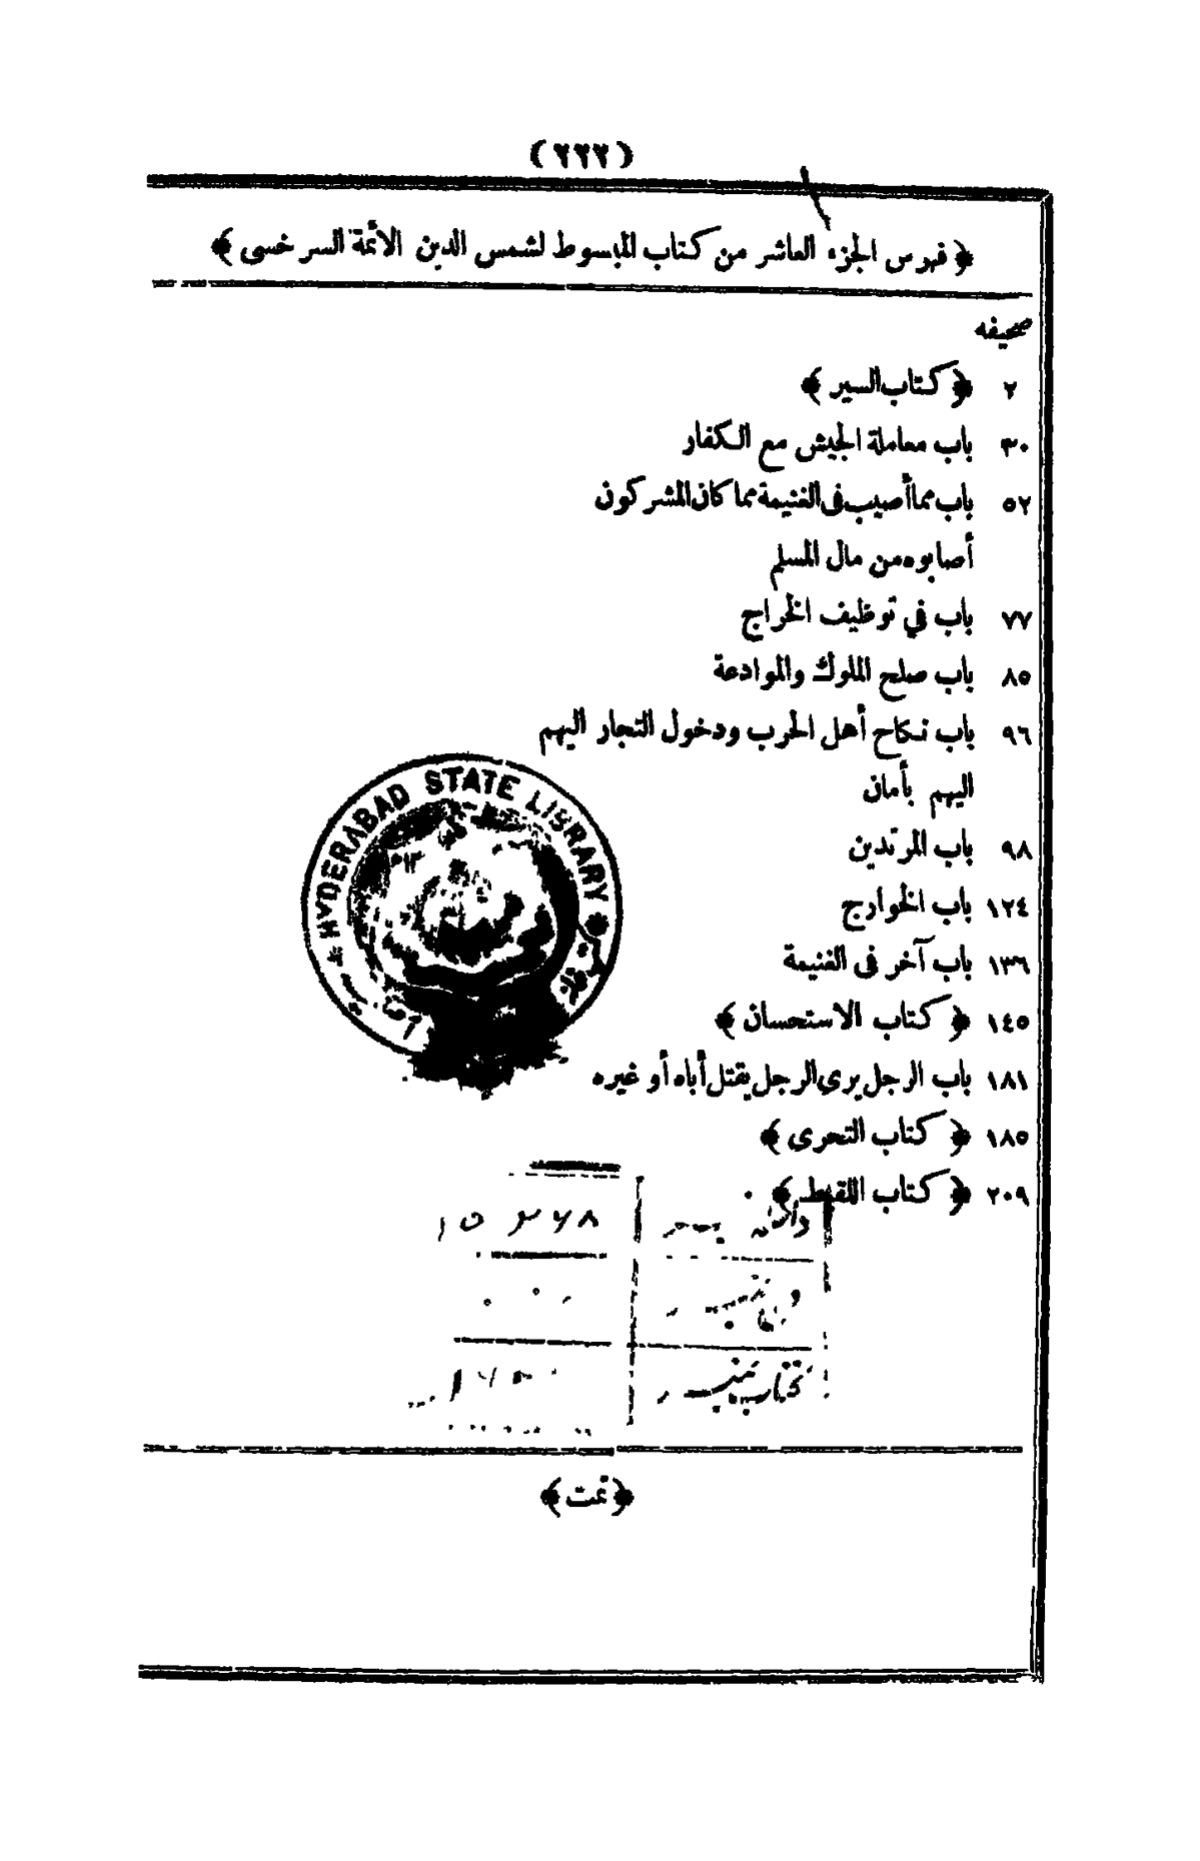 (٢٢٢)
﴿ فهرس الجزء العاشر من كتاب المبسوط لشمس الدين الأئمة السرخسى ﴾
صحيفه
٢ ﴿ كتاب السير ﴾
٣٠ باب معاملة الجيش مع الكفار
٥٢ باب مما أصيب فى الغنيمة مما كان المشركون
أصابوه من مال المسلم
٧٧ باب في توظيف الخراج
٨٥ باب صلح الملوك والموادعة
٩٦ باب نكاح أهل الحرب ودخول التجار اليهم
اليهم بأمان
٩٨ باب المرتدين
١٢٤ باب الخوارج
١٣٦ باب آخر فى الغنيمة
١٤٥ ﴿ كتاب الاستحسان ﴾
١٨١ باب الرجل يرى الرجل يقتل أباه أو غيره
١٨٥ ﴿ كتاب التحرى ﴾
٢٠٩ ﴿ كتاب اللقيط ﴾
HYDERABAD STATE LIBRARY
﴿ تمت ﴾